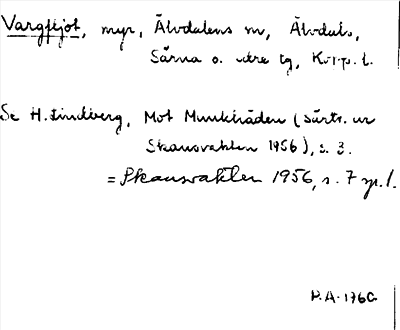 Vargfejot, myr, Älvdalens sn, Älvdals,
Särna o. Idre tg, Kopp. l.
Se H. Lindberg, Mot Munkhåden (särtr. ur
Skansvakten 1956), s. 3.
= Skansvakten 1956, s. 7 sp. 1.
P.A. 1760